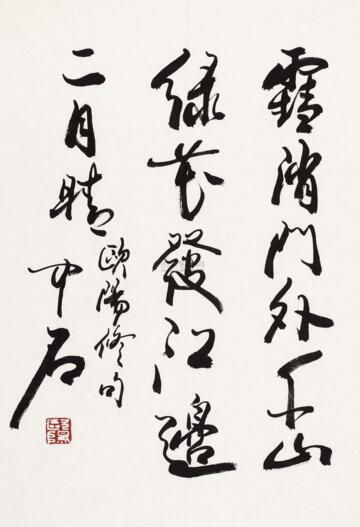 雪消門外千山
綠花發江邊
二月晴
歐陽修句
中石